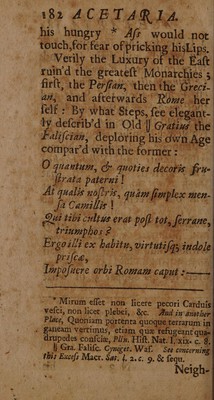 182 ACETARIA.
his hungry * Ass would not
touch, for fear of pricking his Lips.
Verily the Luxury of the East
ruin'd the greatest Monarchies;
first, the Persian, then the Greci-
an, and afterwards Rome her
self: By what Steps, see elegant-
ly describ'd in Old || Gratius the
Faliscian, deploring his own Age
compar'd with the former:
O quantum, & quoties decoris fru-
strata paterni!
At qualis nostris, quàm simplex men-
sa Camilli!
Qui tibi cultus erat post tot, serrane,
triumphos?
Ergo illi ex habitu, virtutisq; indole
priscæ,
Imposuere orbi Romam caput:——
* Mirum esset non licere pecori Carduis
vesci, non licet plebei, &c. And in another
Place, Quoniam portenta quoque terrarum in
ganeam vertimus, etiam quæ refugeant qua-
drupedes consciæ, Plin. Hist. Nat. l. xix. c. 8.
|| Gra. Falisc. Cyneget. Was. See concerning
this Excess Macr. Sat. l. 2. c. 9. & sequ.
Neigh-